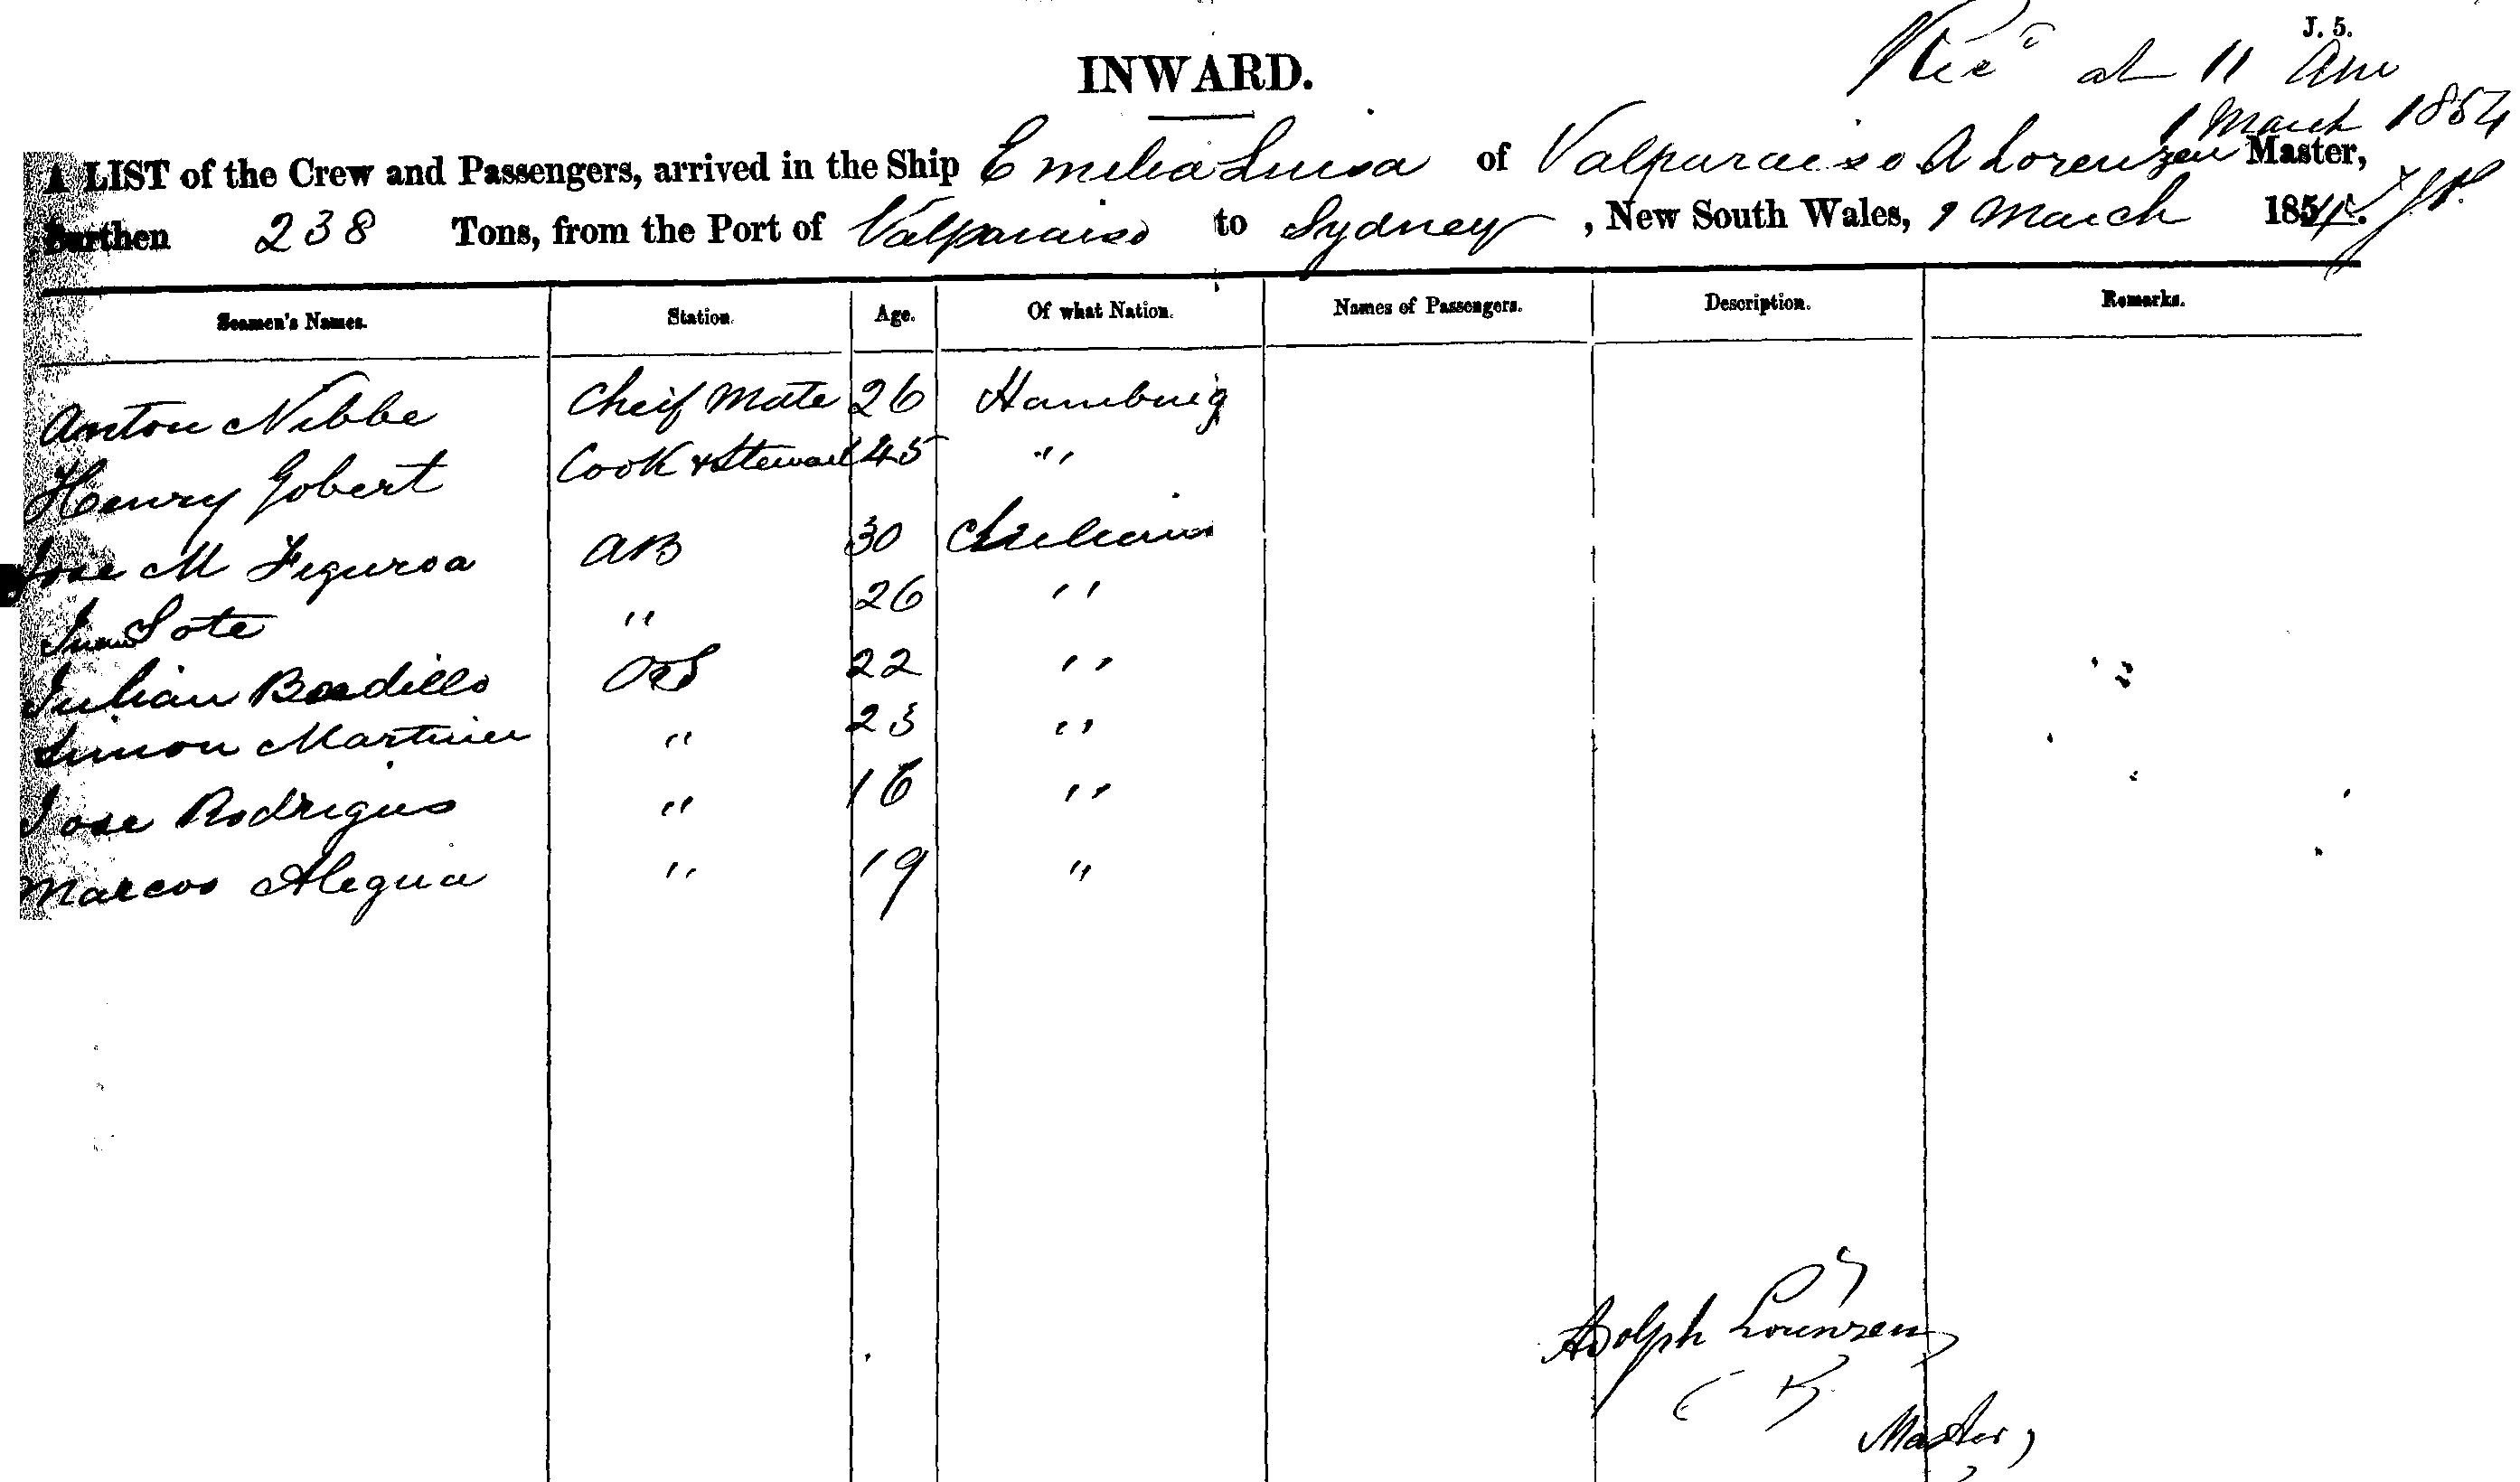 J. 5.
INWARD.
Recd at 11 Am
1 March 1854
A LIST of the Crew and Passengers, arrived in the Ship Emilia Luisa of Valparaiso A Lorenzen Master,
Burthen 238 Tons, from the Port of Valparaiso to Sydney, New South Wales, 1 March 1854.
Seamen's Names. Station. Age. Of what Nation. Names of Passengers. Description. Remarks.
Anton Nibbe Cheif Mate 26 Hamburg
Henry Gobert Cook & Steward 45 "
Jose M Figuroa AB 30 Chilian
Juan Sote " 26 "
Julian Badillo OS 22 "
Simon Martinez " 23 "
Jose Rodrigus " 16 "
Marcos Alegria " 19 "
Adolph Lorenzen
Master,